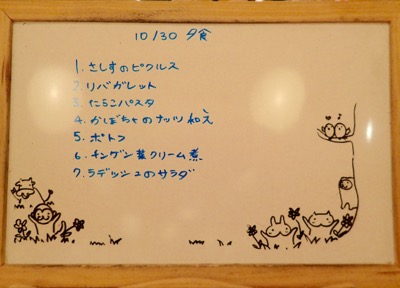 10/30 夕食
1. さしすのピクルス
2. リバガレット
3. にらこパスタ
4. かぼちゃのナッツ和え
5. ポトフ
6. チンゲン菜クリーム煮
7. ラデッシュのサラダ